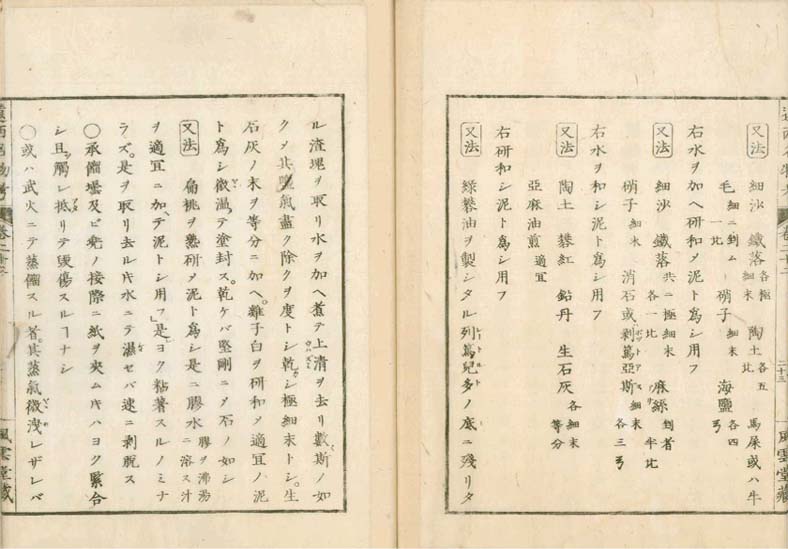 又法 細沙 鐵落各極細末 陶土各五比 馬屎或ハ牛
毛細ニ剉ム一比 硝子細末 海鹽各四弓
右水ヲ加ヘ研和メ泥ト爲シ用フ
又法 細沙 鐵落共ニ極細末各一比 麻絲剉者半比
硝子細末 消石或剥篤亞斯細末各三弓
右水ヲ和シ泥ト爲シ用フ
又法 陶土 礬紅 鉛丹 生石灰各細末等分
亞麻油煎適宜
右研和シ泥ト爲シ用フ
又法 緑礬油ヲ製シタル列篤兒多ノ底ニ殘リタ
二十三
風雲堂藏
ル渣塊ヲ取リ水ヲ加ヘ煮テ上清ヲ去リ數斯ノ如
クメ其鹽氣盡ク除クヲ度トシ乾シ極細末トシ。生
石灰ノ末ヲ等分ニ加ヘ。雞子白ヲ研和メ適宜ノ泥
ト爲シ微温メテ塗封ス。乾ケバ堅剛ニメ石ノ如シ
又法 扁桃ヲ熟研メ泥ト爲シ是ニ膠水膠ヲ沸湯ニ溶ス汁
ヲ適宜ニ加ヘ泥トシ用フ是ヨク粘著スルノミナ
ラズ。是ヲ取リ去ルキ水ニテ濕セバ速ニ剥脱ス
〇承餾壜及ビ兜ノ接際ニ紙ヲ夾ムキハヨク緊合
シ且ツ觸レ抵リテ毀傷スルコナシ
〇或ハ武火ニテ蒸餾スル者。其蒸氣微洩レザレバ
風雲堂藏